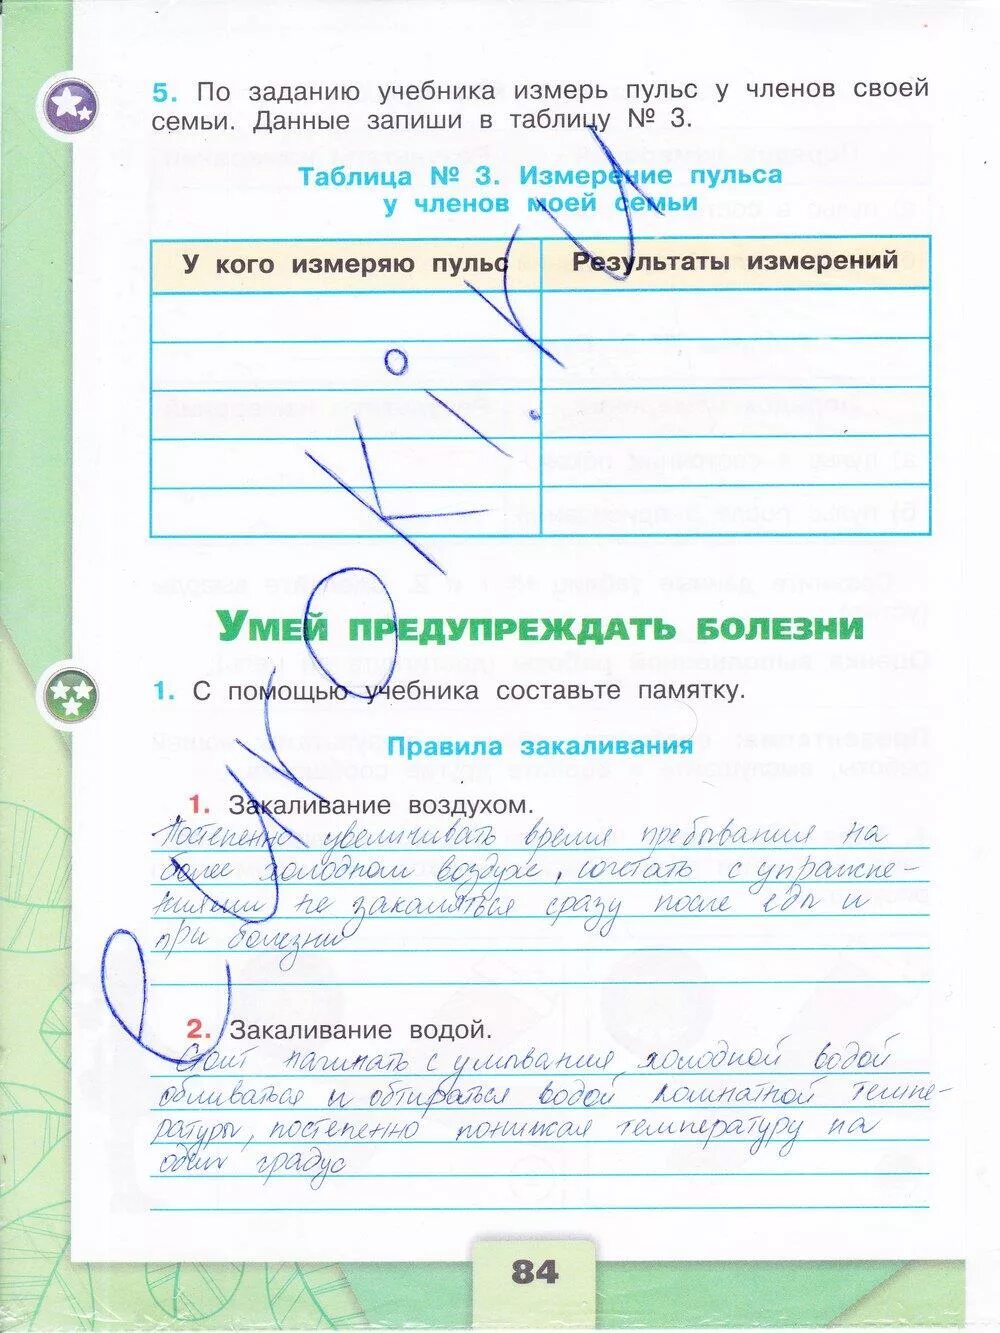 5. По заданию учебника измерь пульс у членов своей
семьи. Данные запиши в таблицу № 3.
Таблица № 3. Измерение пульса
у членов моей семьи
У кого измеряю пульс
Результаты измерений
УМЕЙ ПРЕДУПРЕЖДАТЬ БОЛЕЗНИ
1. С помощью учебника составьте памятку.
Правила закаливания
1. Закаливание воздухом.
Постепенно увеличивать время пребывания на
более холодном воздухе, сочетать с упражне-
ниями не закаляться сразу после еды и
при болезни
2. Закаливание водой.
Стоит начинать с умывания холодной водой
обливаться и обтираться водой комнатной темпе-
ратуры, постепенно понижая температуру на
один градус
84